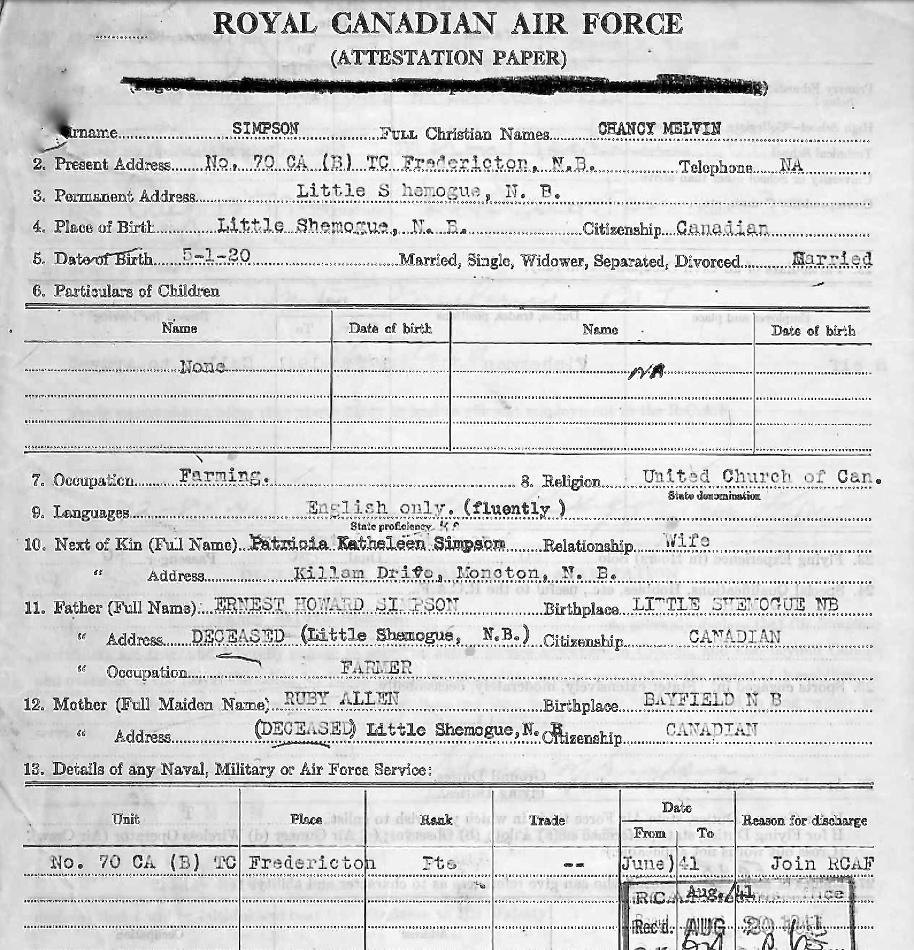 ROYAL CANADIAN AIR FORCE
(ATTESTATION PAPER)
urname SIMPSON FULL Christian Names CHANCY MELVIN
2. Present Address No. 70 CA (B) TC Fredericton, N.B. Telephone NA
3. Permanent Address Little S hemogue, N. B.
4. Place of Birth Little Shemogue, N. B. Citizenship Canadian
5. Date of Birth 5-1-20 Married, Single, Widower, Separated, Divorced Married
6. Particulars of Children
Name Date of birth Name Date of birth
None NA
7. Occupation Farming. 8. Religion United Church of Can.
State denomination
9. Languages English only. (fluently )
State proficiency
10. Next of Kin (Full Name) Patricia Katheleen Simpson Relationship Wife
" Address Killam Drife, Moncton, N. B.
11. Father (Full Name) ERNEST HOWARD SIMPSON Birthplace LITTLE SHEMOGUE NB
" Address DECEASED (Little Shemogue, N.B.) Citizenship CANADIAN
" Occupation FARMER
12. Mother (Full Maiden Name) RUBY ALLEN Birthplace BAYFIELD N B
" Address (DECEASED) Little Shemogue, N. B. Citizenship CANADIAN
13. Details of any Naval, Military or Air Force Service:
Unit Place Rank Trade Date From To Reason for discharge
No. 70 CA (B) TC Fredericton Pte -- June)41 Join RCAF
Aug./41
Rec'd. AUG 20 1941